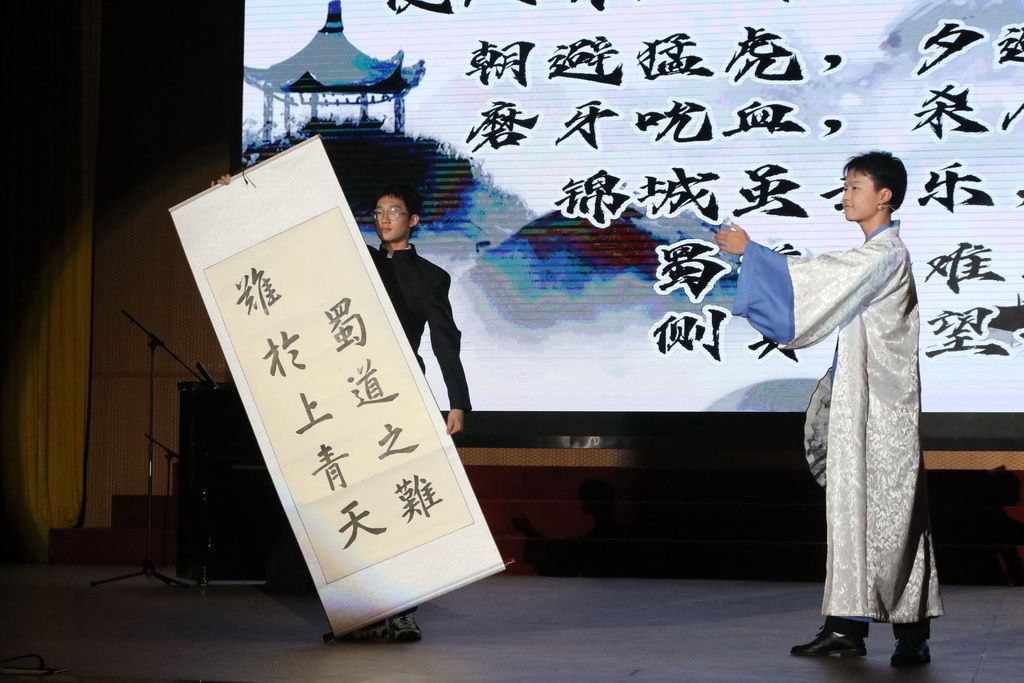 朝避猛虎，夕
磨牙吮血，杀
锦城虽 乐
蜀 难
侧 望
蜀道之難
難於上青天